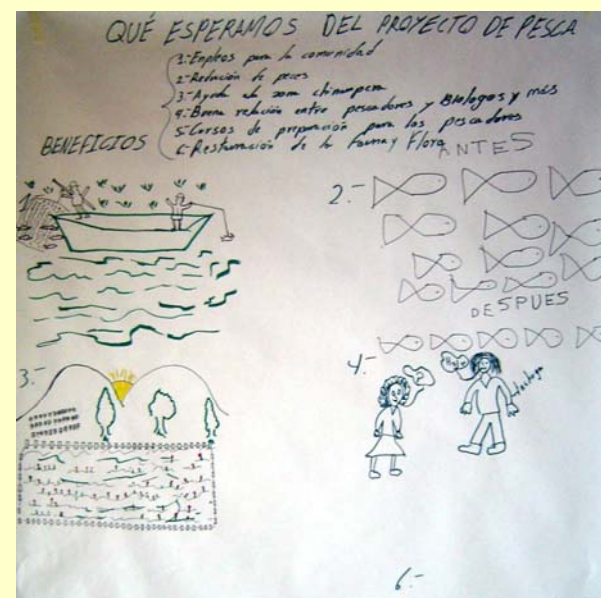 QUÉ ESPERAMOS DEL PROYECTO DE PESCA
BENEFICIOS
1.- Enpleos para la comunidad
2.- Redución de peces
3.- Ayuda a la zona chinampera
4.- Buena relación entre pescadores y Biologos y más
5.- Corsos de preparación para los pescadores
6.- Restauración de la Fauna y Flora
1
2.-
ANTES
DESPUES
3.-
4.-
Hola
6.-